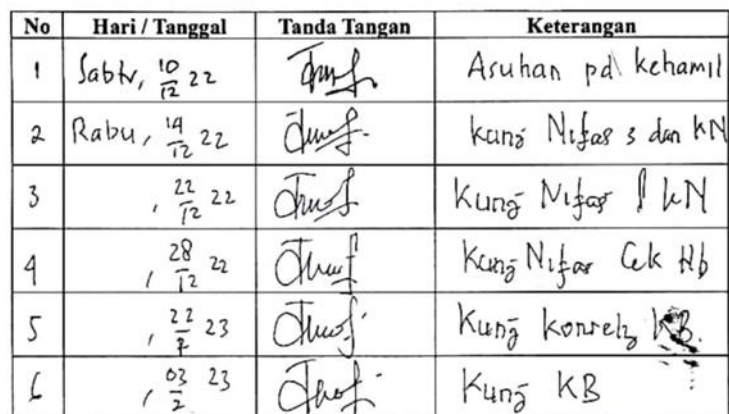 No Hari / Tanggal Tanda Tangan Keterangan
1 Sabtu, 10/12 22 Asuhan pd kehamil
2 Rabu, 14/12 22 kunj Nifas 3 dan KN
3 , 22/12 22 Kunj Nifas KN
4 , 28/12 22 Kunj Nifas Cek Hb
5 , 22 23 Kunj KB.
6 , 03/2 23 Kunj KB